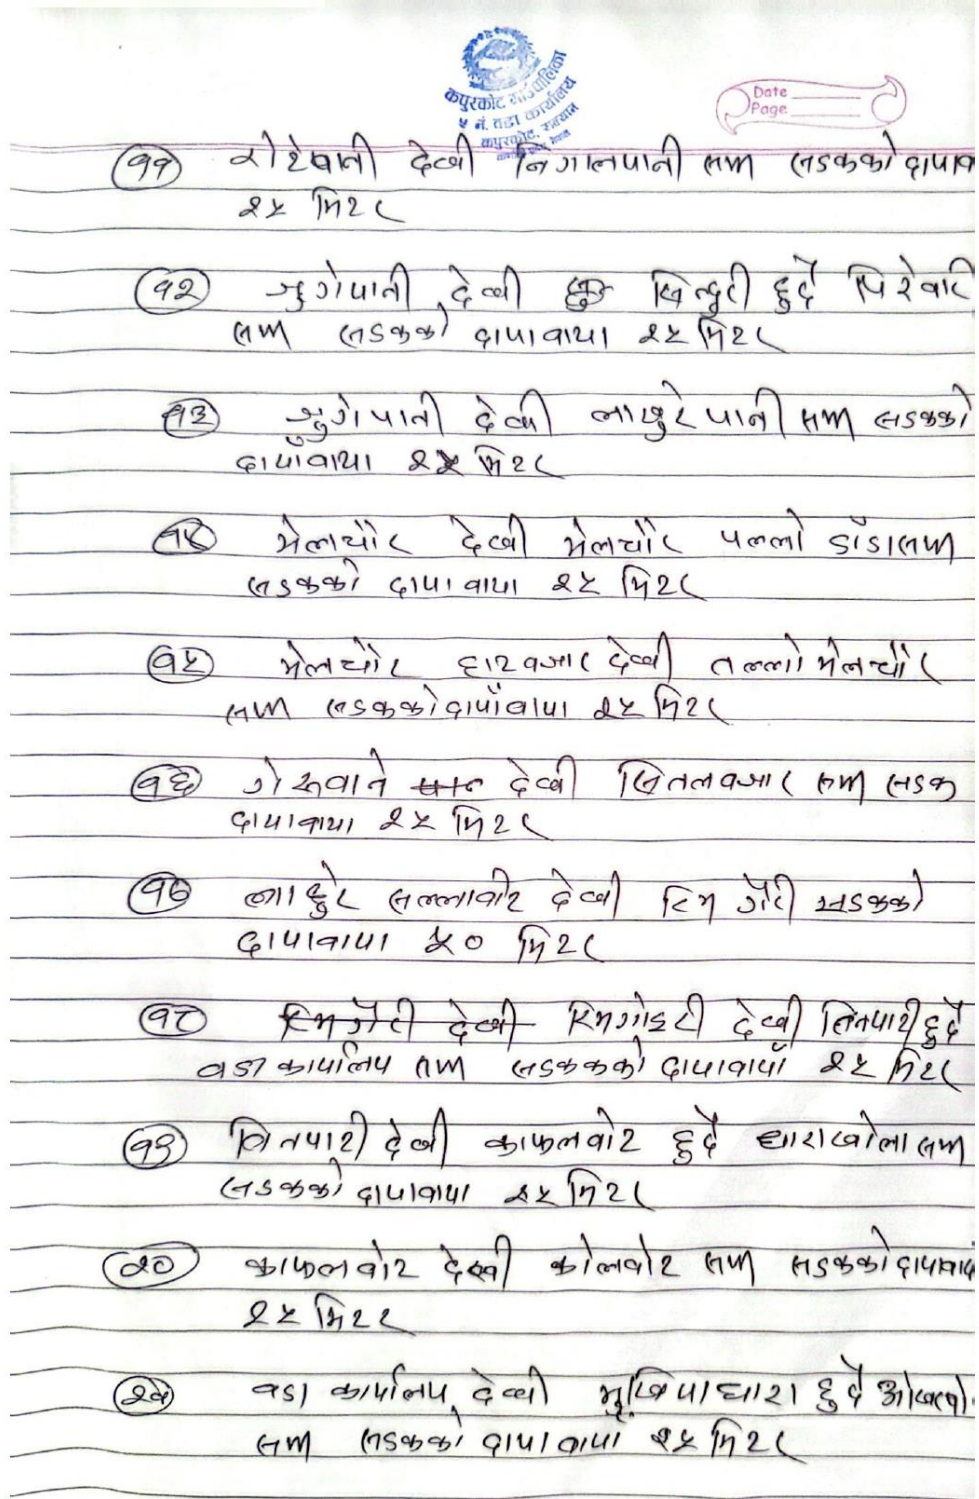 कपुरकोट गाउँपालिका
५ नं. वडा कार्यालय
कपुरकोट, सल्यान
Date
Page
११ रोटेपानी देखी निगालपानी सम्म सडकको दायाव
२५ मिटर
१२ जुगेपानी देखी सिन्दुरी हुदै पिरेवार
सम्म सडकको दायावाया २५ मिटर
१३ जुगेपानी देखी लाहुरेपानी सम्म सडकको
दायाँवाया २५ मिटर
१४ मेलचौर देखी मेलचौर पल्लो डाँडासम्म
सडकको दायावाया २५ मिटर
१५ मेलचौर हाटवजार देखी तल्लो मेलचौर
सम्म सडकको दायाँवाया २५ मिटर
१६ देखी सितलवजार सम्म सडक
दायावाया २५ मिटर
१७ लाहुरे सल्लावोट देखी सडकको
दायावाया ५० मिटर
१८ देखी तिनपारी हुदै
वडा कार्यालय सम्म सडककको दायावायाँ २५ मिटर
१९ तिनपारी देखी काफलवोट हुदै धाराखोला सम्म
सडकको दायावाया २५ मिटर
२० काफलवोट देखी कोलवोट सम्म सडकको दायावाया
२५ मिटर
२१ वडा कार्यालय देखी मुखियाधारा हुदै
सम्म सडकको दायावायाँ २५ मिटर